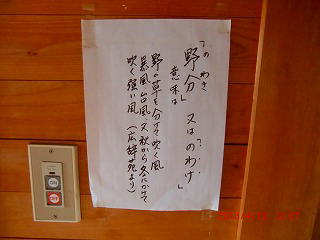 「のわき
野分」又はのわけ」
意味は
野の草を分けて吹く風
暴風 台風 又秋から冬にかけて
吹く強い風
（広辞苑より）